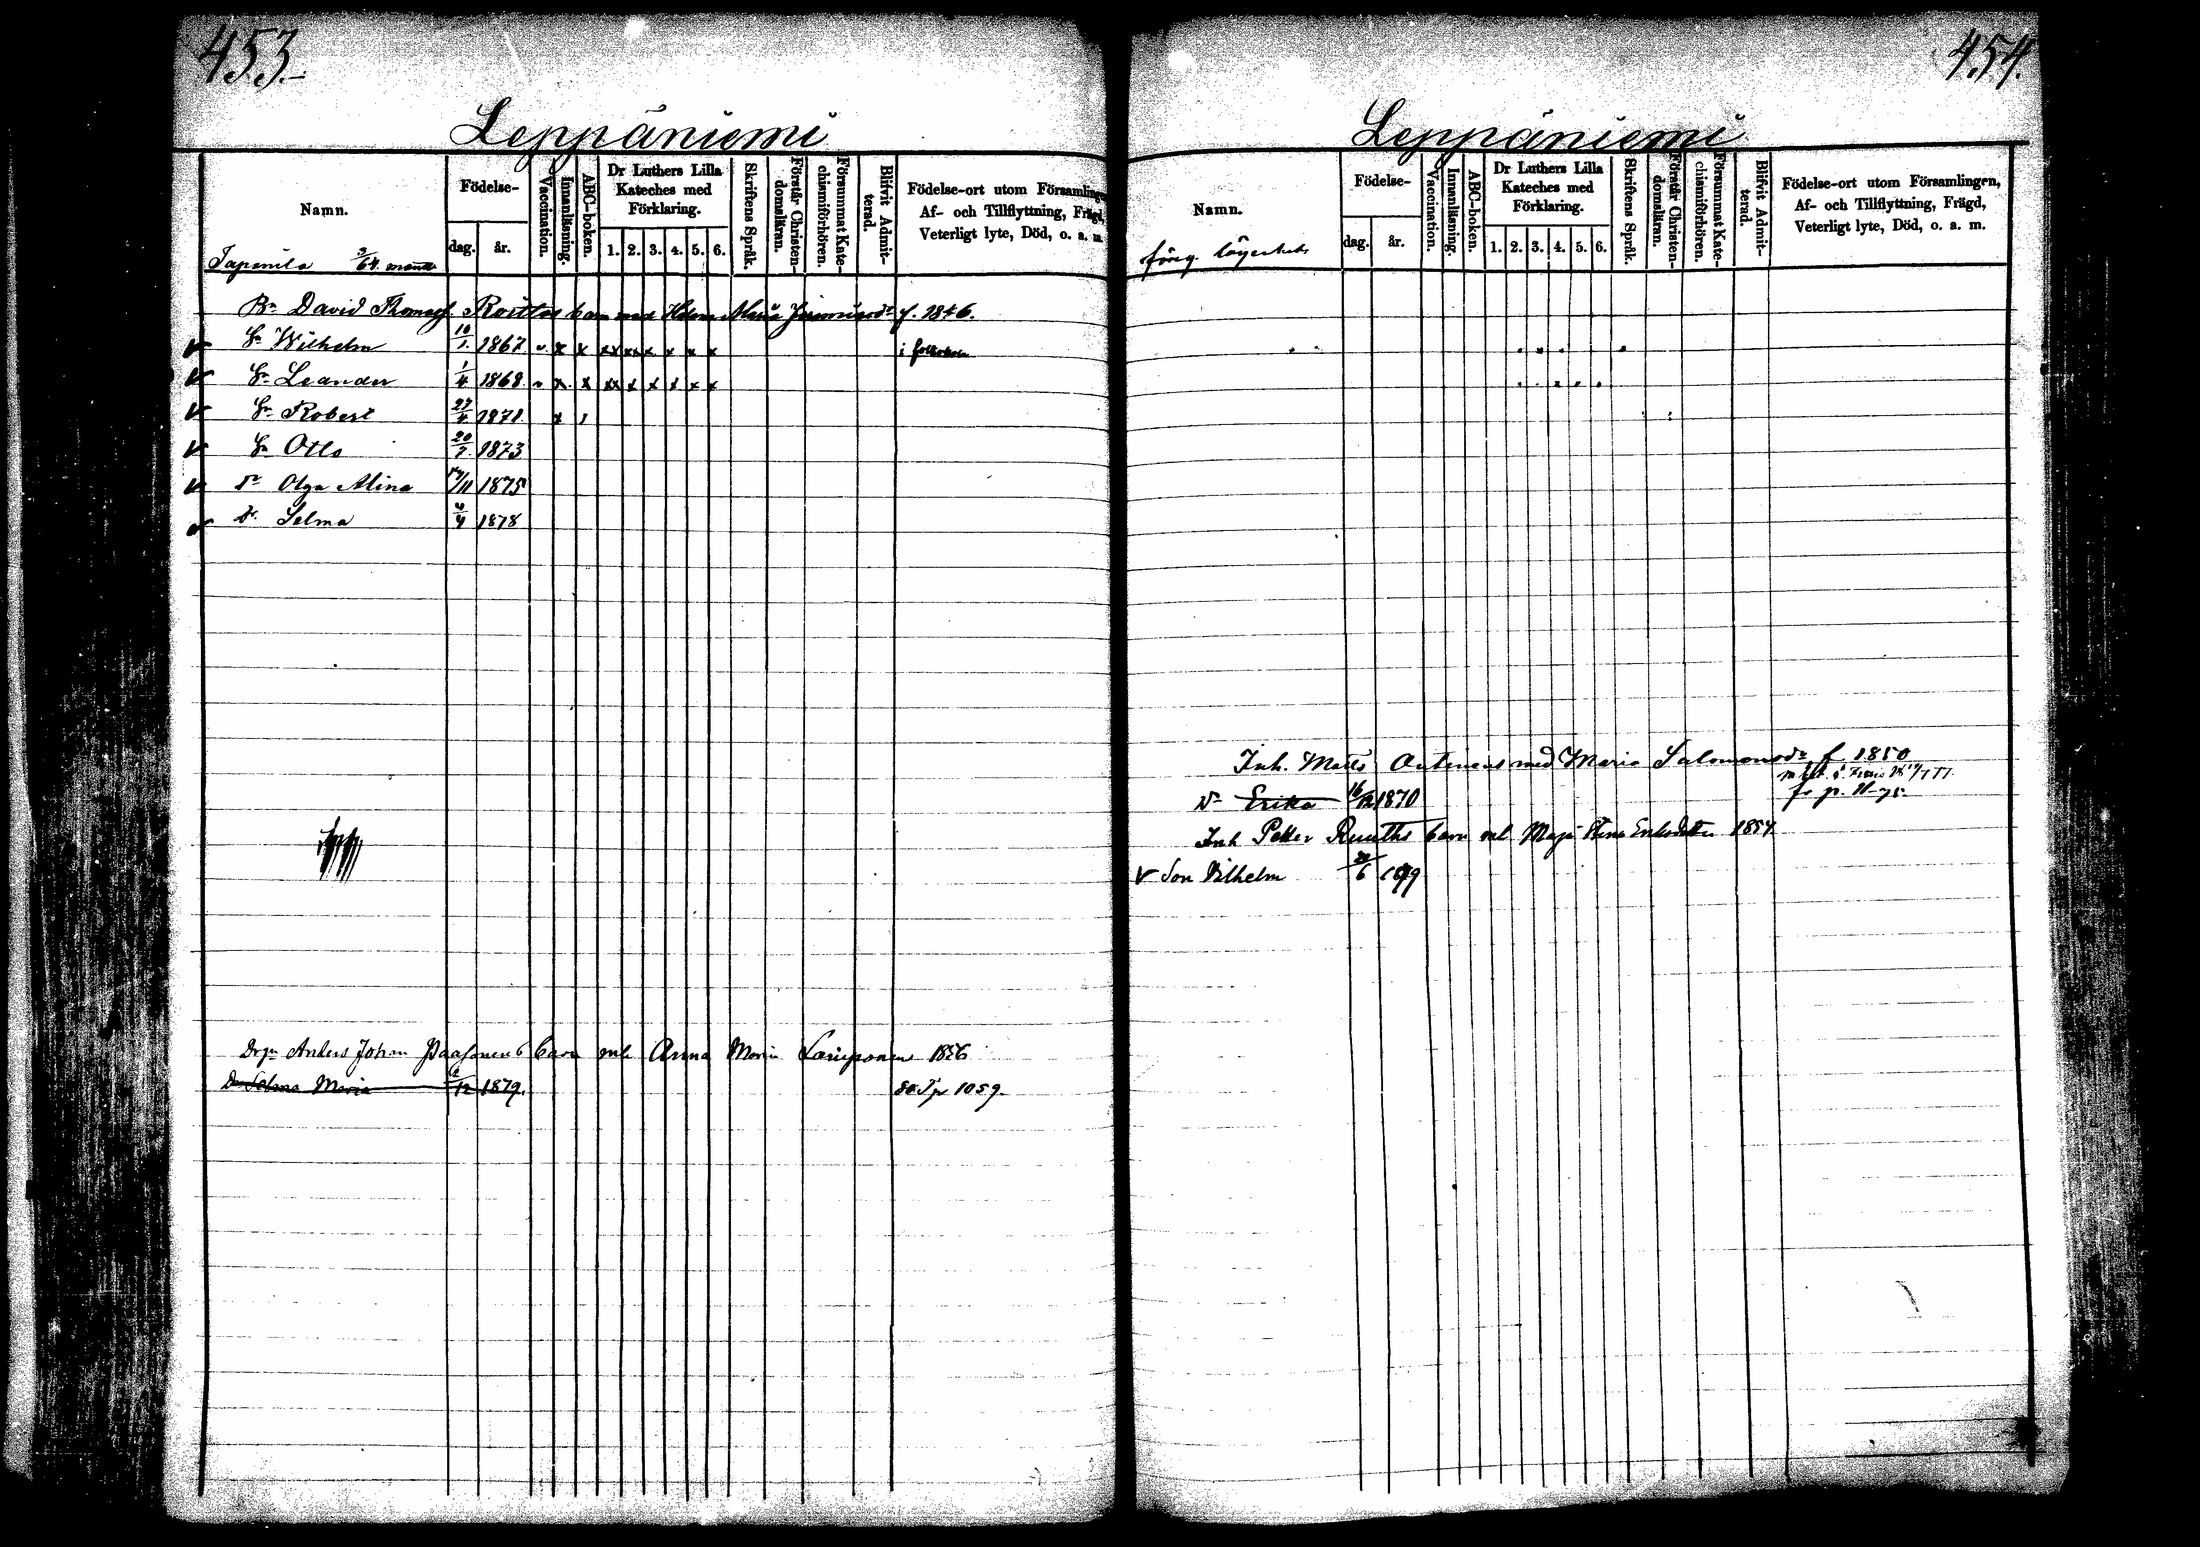 453.
Leppäniemi
Namn.
Födelse-
dag. år.
Vaccination.
Innanläsning.
ABC-boken.
Dr Luthers Lilla
Kateches med
Förklaring.
1. 2. 3. 4. 5. 6.
Skriftens Språk.
Förstår Christen-
domsläran.
Försummat Kate-
chismiförhören.
Blifvit Admit-
terad.
Födelse-ort utom Församlingen
Af- och Tillflyttning, Frägd,
Veterligt lyte, Död, o. a. m.
Tapanila
Bn David Thomasf. barn med Helena Maria f. 1846.
Sn Wilhelm 10/1 1867 x x xx xx x x x x
Sn Leander 1/4 1868 x x xx x x x x x
Sn Robert 27/4 1871 x
Sn Otto 20/7 1873
Dr Olga Alina 1875
Dr. Selma 4/4 1878
Anders Johan Paasonens barn ml Anna Maria 1856
Dr Selma Maria 1879. 1059.
454.
Leppäniemi
Namn.
Födelse-
dag. år.
Vaccination.
Innanläsning.
ABC-boken.
Dr Luthers Lilla
Kateches med
Förklaring.
1. 2. 3. 4. 5. 6.
Skriftens Språk.
Förstår Christen-
domsläran.
Försummat Kate-
chismiförhören.
Blifvit Admit-
terad.
Födelse-ort utom Församlingen,
Af- och Tillflyttning, Frägd,
Veterligt lyte, Död, o. a. m.
Inh. Matts med Maria Salomonsdr f. 1850
Dr Erika 16/12 1870
Inh Petter Ruuths barn ml Maja Stina 1854
Son Vilhelm 1879